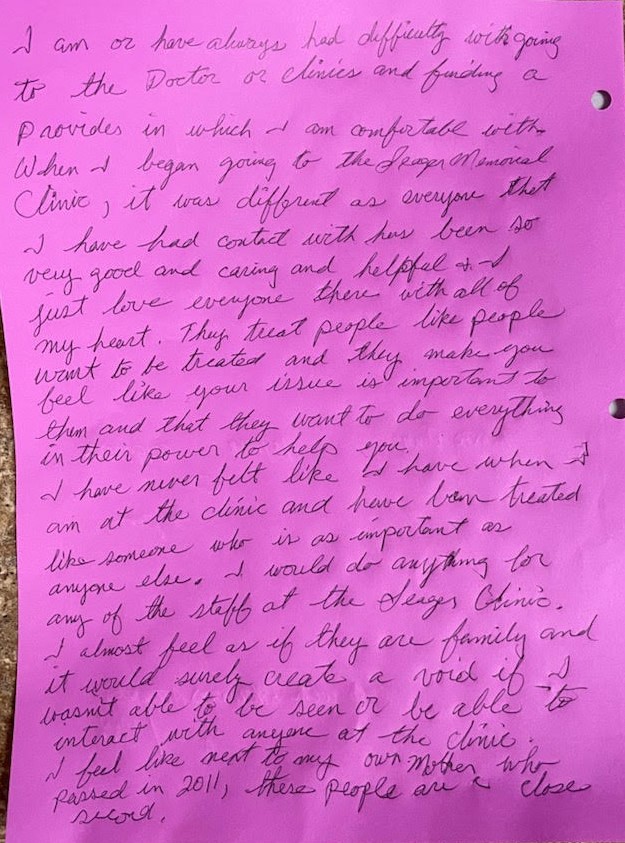 I am or have always had difficulty with going
to the Doctor or clinics and finding a
Provides in which I am comfortable with.
When I began going to the Seager Memorial
Clinic, it was different as everyone that
I have had contact with has been so
very good and caring and helpful & I
just love everyone there with all of
my heart. They treat people like people
want to be treated and they make you
feel like your issue is important to
them and that they want to do everything
in their power to help you.
I have never felt like I have when I
am at the clinic and have been treated
like someone who is as important as
anyone else. I would do anything for
any of the staff at the Seager Clinic.
I almost feel as if they are family and
it would surely create a void if I
wasn't able to be seen or be able to
interact with anyone at the clinic.
I feel like next to my own Mother who
passed in 2011, these people are a close
second.